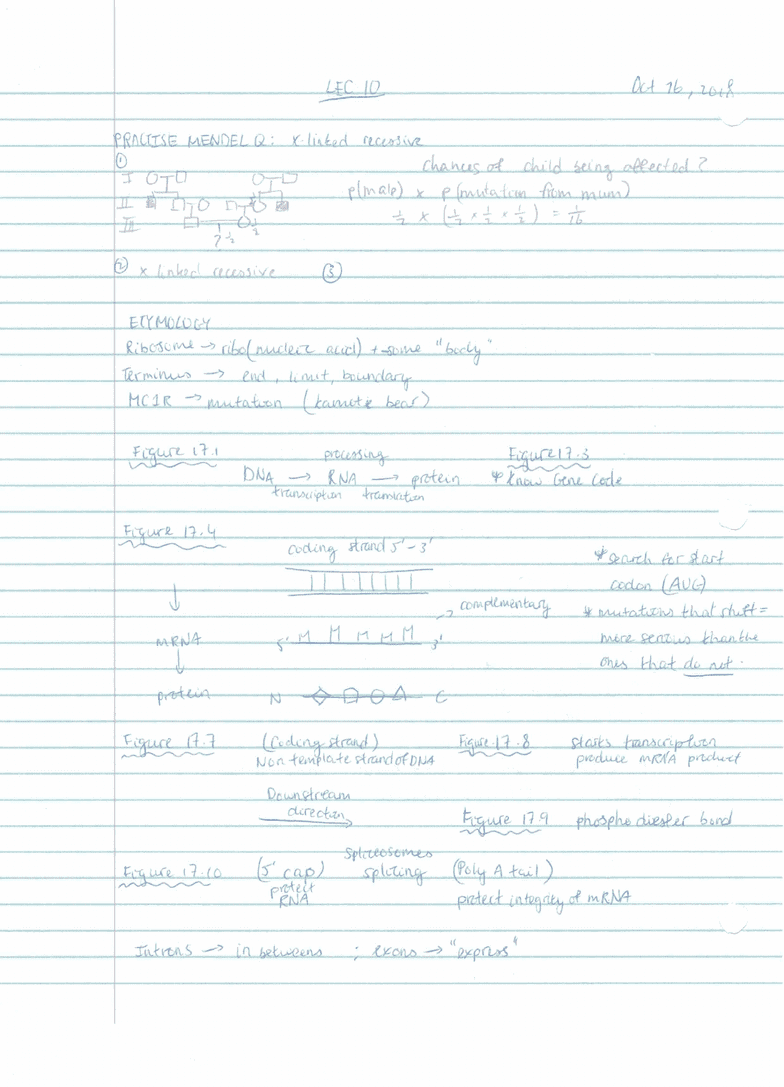 LEC 10
Oct 16, 2018
PRACTISE MENDEL Q: X-linked recessive
①
chances of child being affected?
I
p(male) x p(mutation from mum)
II
½ x (½ x ½ x ½) = 1/16
III
½
? ½
② x linked recessive ③
ETYMOLOGY
Ribosome → ribo(nucleic acid) + -some "body"
Terminus → end, limit, boundary
MC1R → mutation (kamite bear)
Figure 17.1
processing
Figure 17.3
DNA → RNA → protein
* Know Gene Code
transcription translation
Figure 17.4
coding strand 5' - 3'
* search for start
codon (AUG)
complementary
* mutations that shift =
mRNA
5' 3'
more serious than the
ones that do not.
protein
N C
Figure 17.7
(Coding strand)
Non template strand of DNA
Figure 17.8
starts transcription
produce mRNA product
Downstream
direction
Figure 17.9
phospho diester bond
Figure 17.10
(5' cap)
protect
RNA
Spliceosomes
splicing
(Poly A tail)
protect integrity of mRNA
Introns → in betweens ; exons → "express"